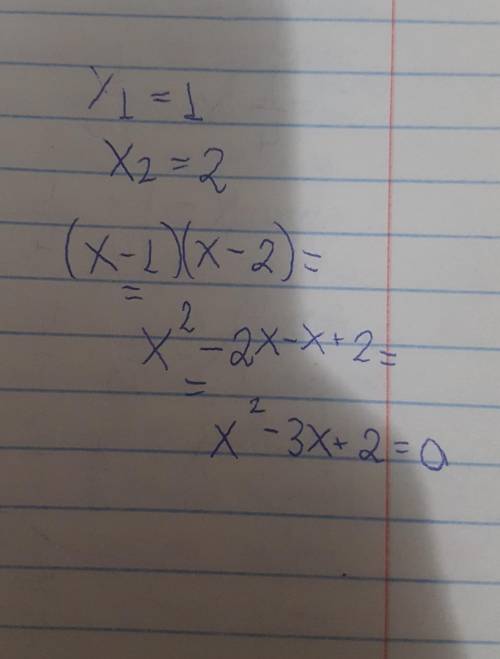 x₁ = 1
x₂ = 2
(x-1)(x-2) =
= x² - 2x - x + 2 =
= x² - 3x + 2 = 0